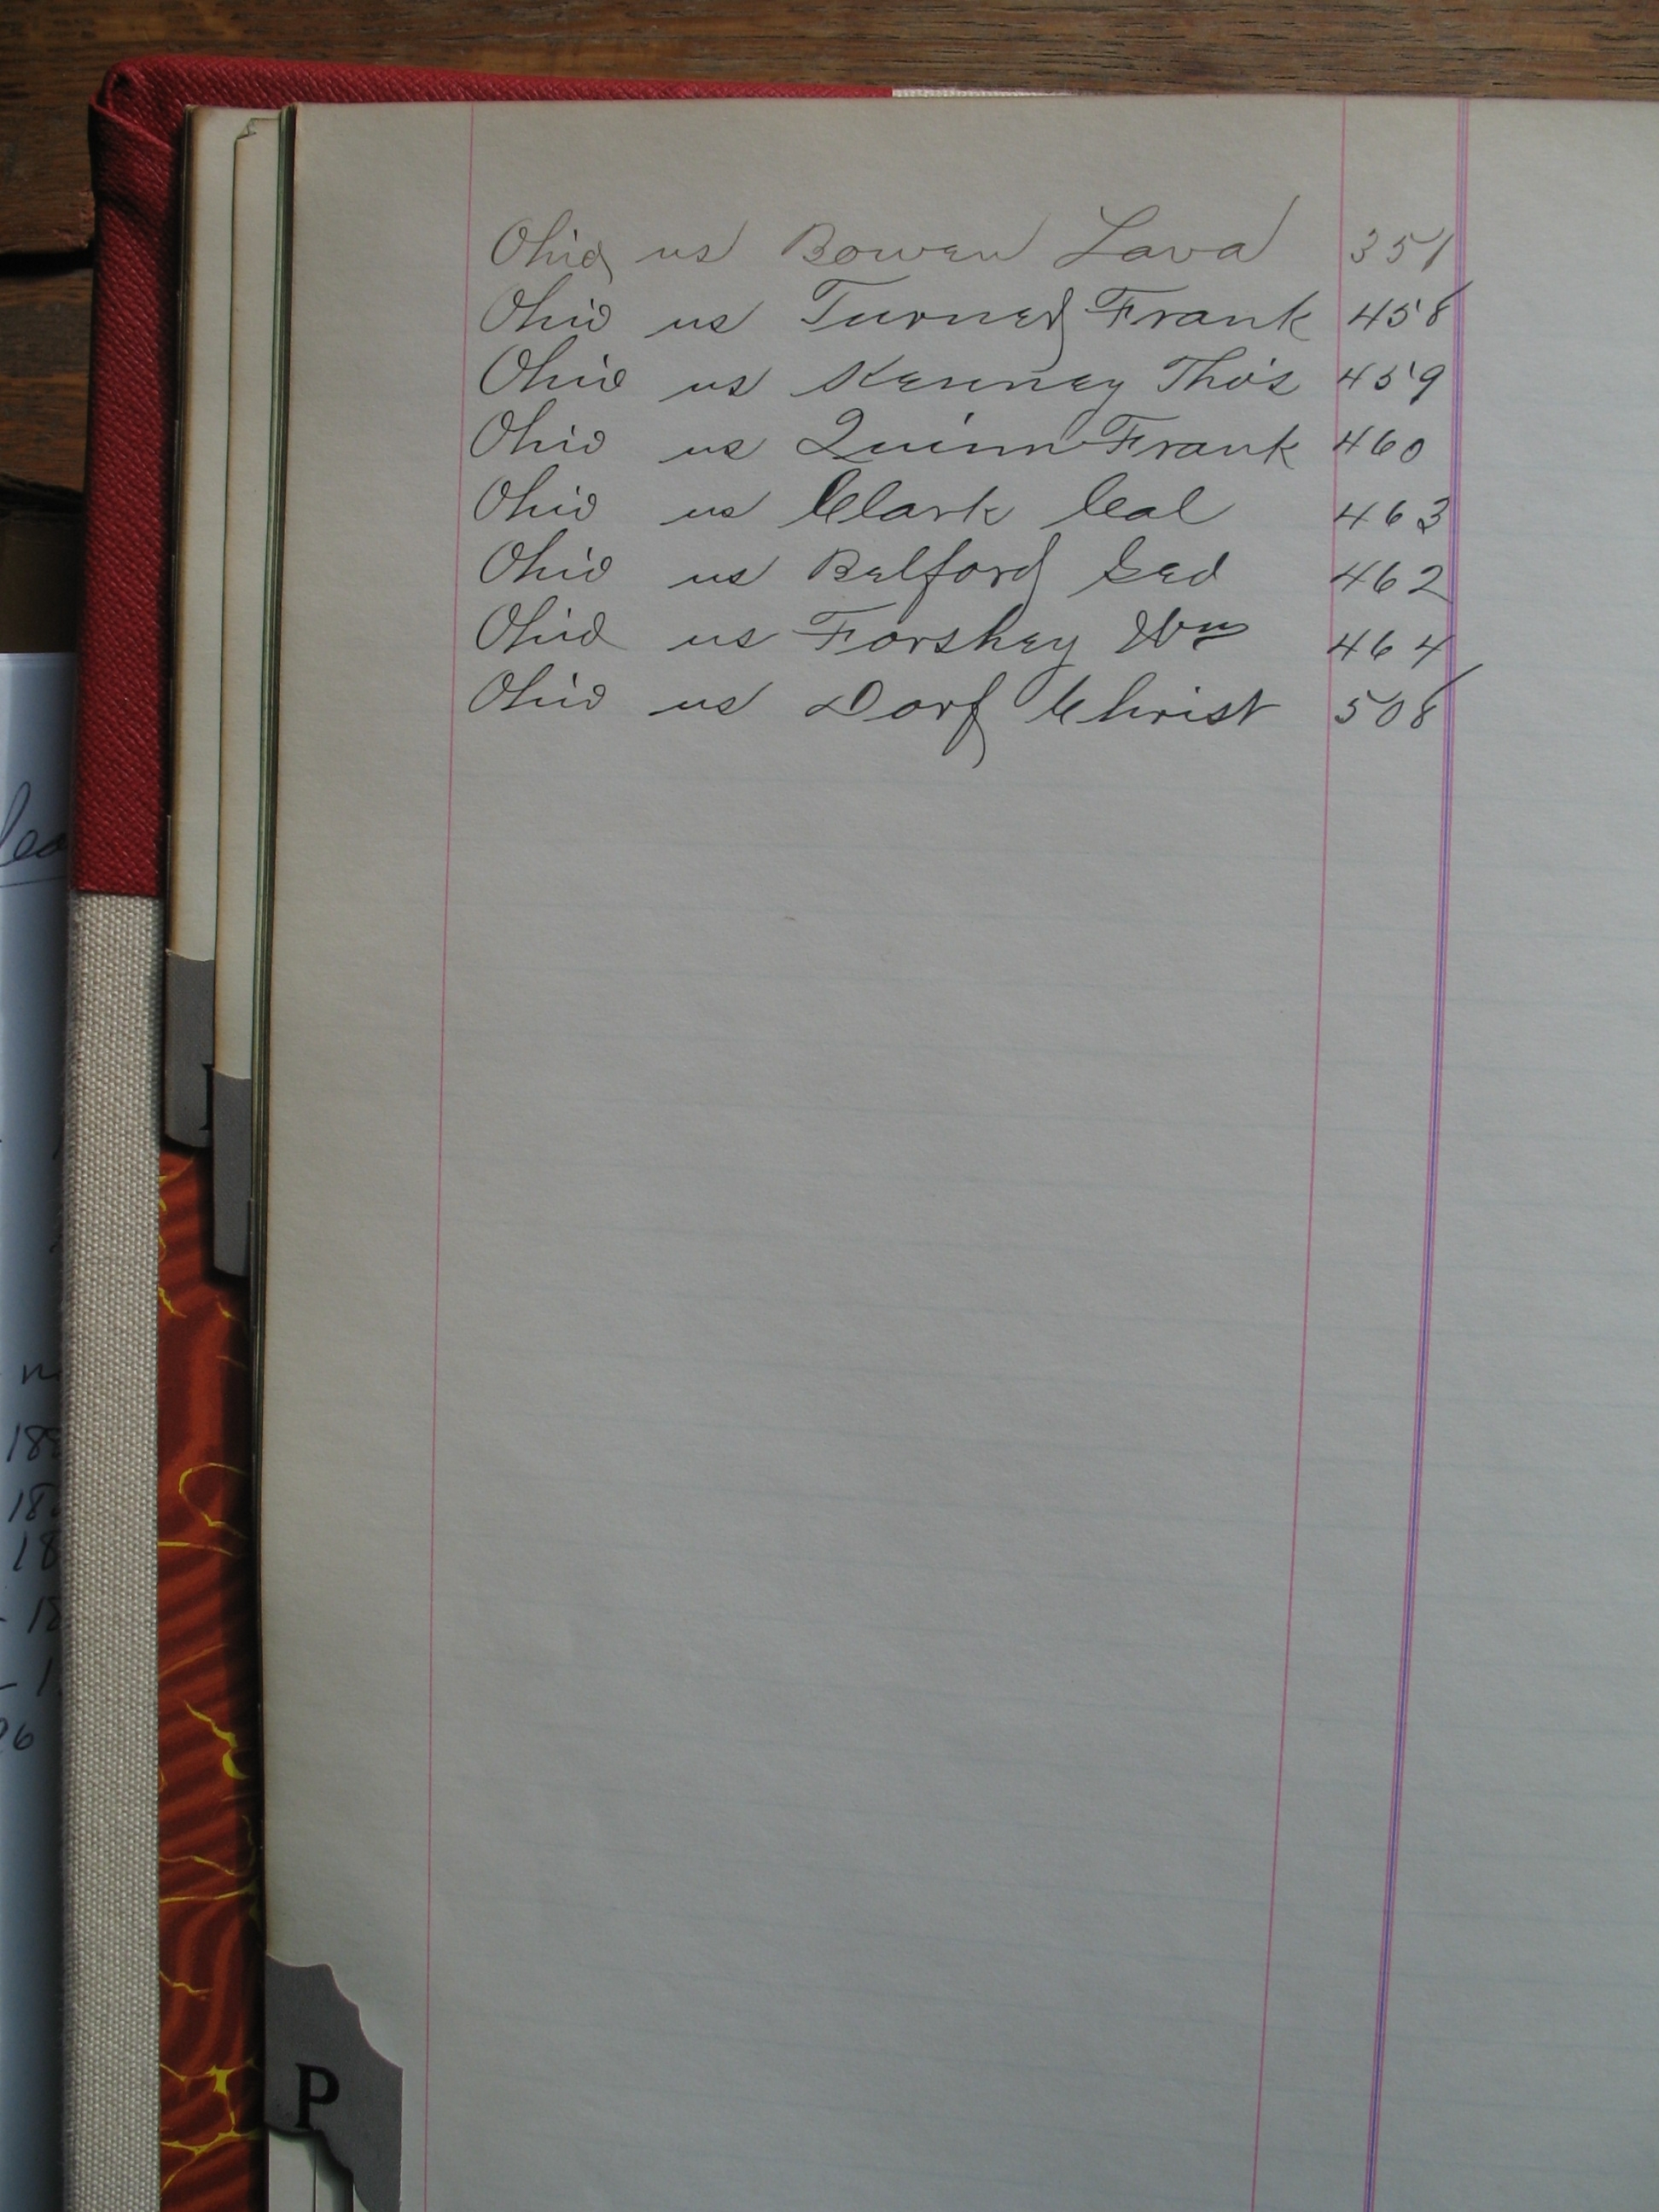 Ohio vs Bowen Lava 351
Ohio vs Turner Frank 458
Ohio vs Kenney Tho's 459
Ohio vs Quinn Frank 460
Ohio vs Clark Cal 463
Ohio vs Belford Geo 462
Ohio vs Forshey Wm 464
Ohio vs Dorf Christ 508
188
18
18
18
26
P